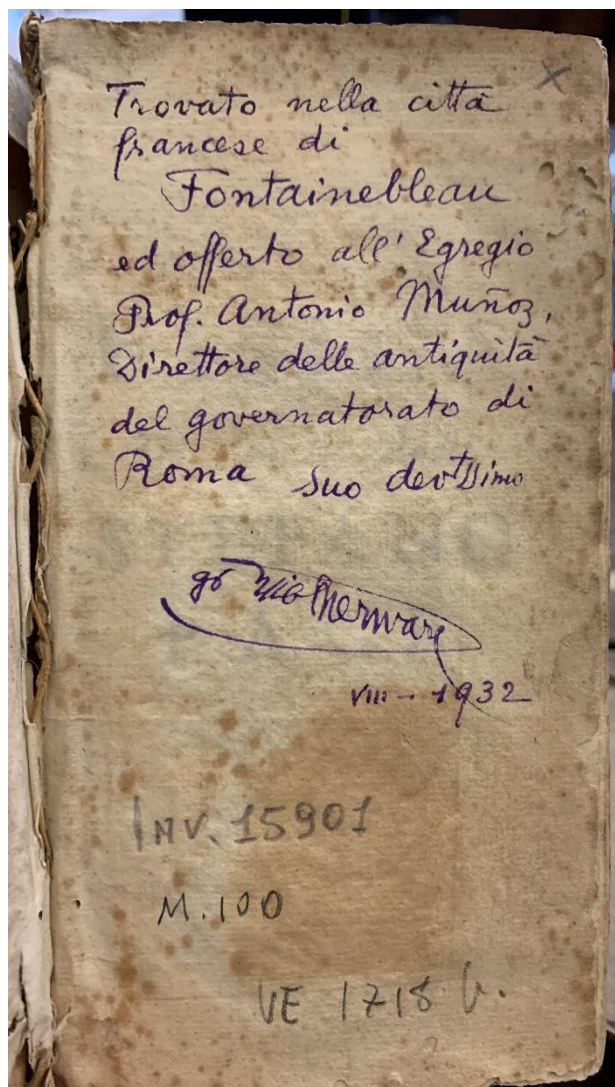 Trovato nella città
francese di
Fontainebleau
ed offerto all' Egregio
Prof. Antonio Muñoz,
Direttore delle antiquità
del governatorato di
Roma suo dev.tssimo
VIII - 1932
INV. 15901
M. 100
VE 1718 b.